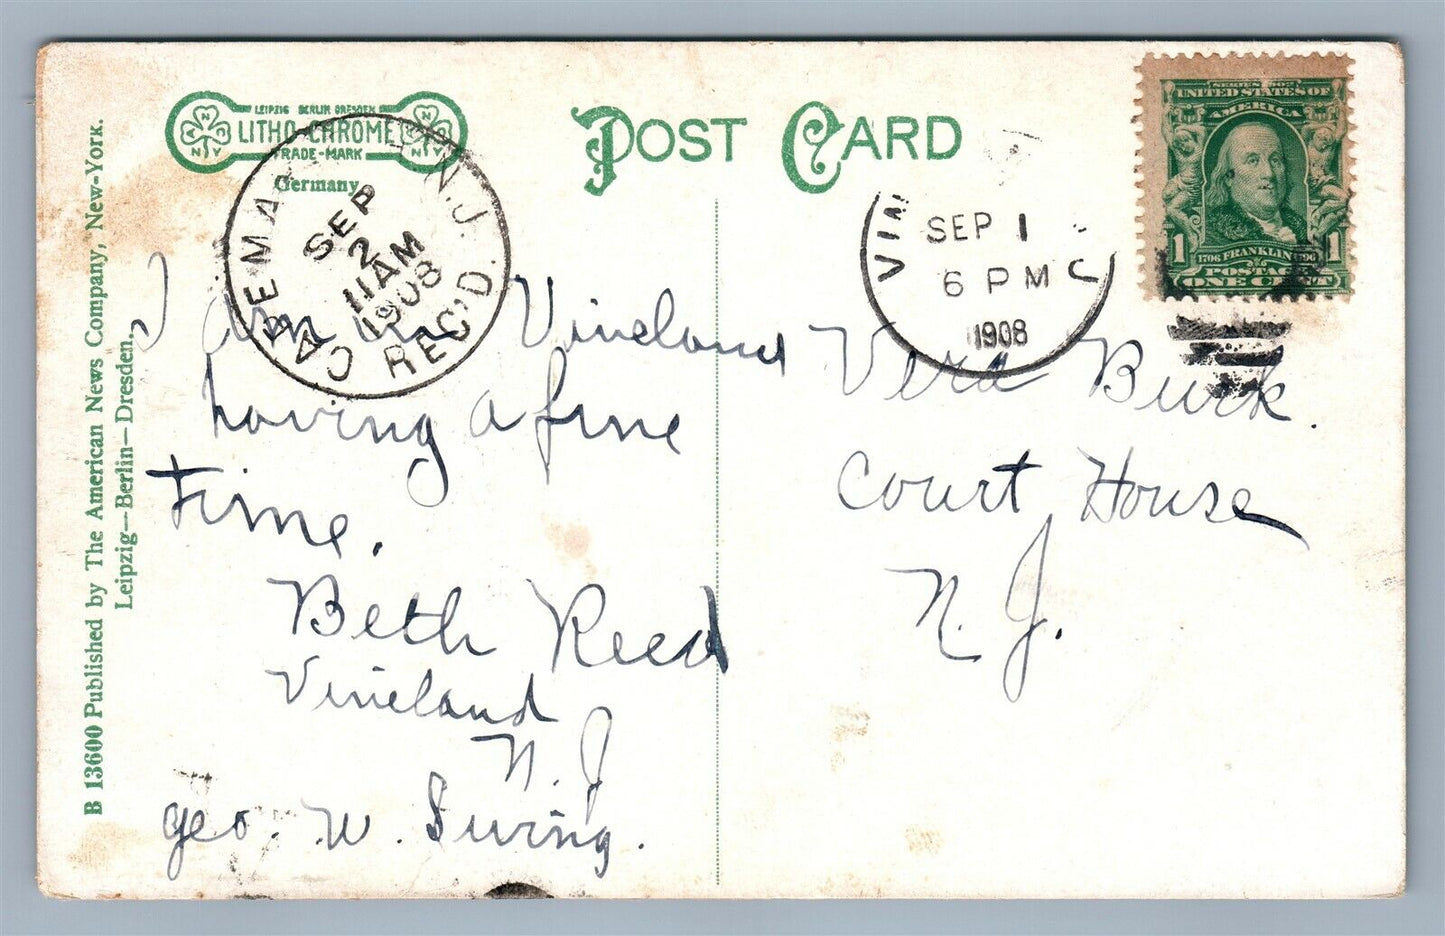 B 13600 Published by The American News Company, New-York.
Leipzig—Berlin—Dresden.
LEIPZIG BERLIN DRESDEN
LITHO-CHROME
TRADE-MARK
N Y
N Y
Germany
POST CARD
CAPE MAY N.J.
SEP
2
11 AM
1908
REC'D.
VIN
SEP 1
6 PM
1908
J
SERIES 1902
UNITED STATES OF
AMERICA
1706 FRANKLIN 1790
1 1
POSTAGE
ONE CENT
I am in Vineland
having a fine
time.
Beth Reed
Vineland
N. J
Geo. W. Swing.
Vera Buck.
Court House
N. J.